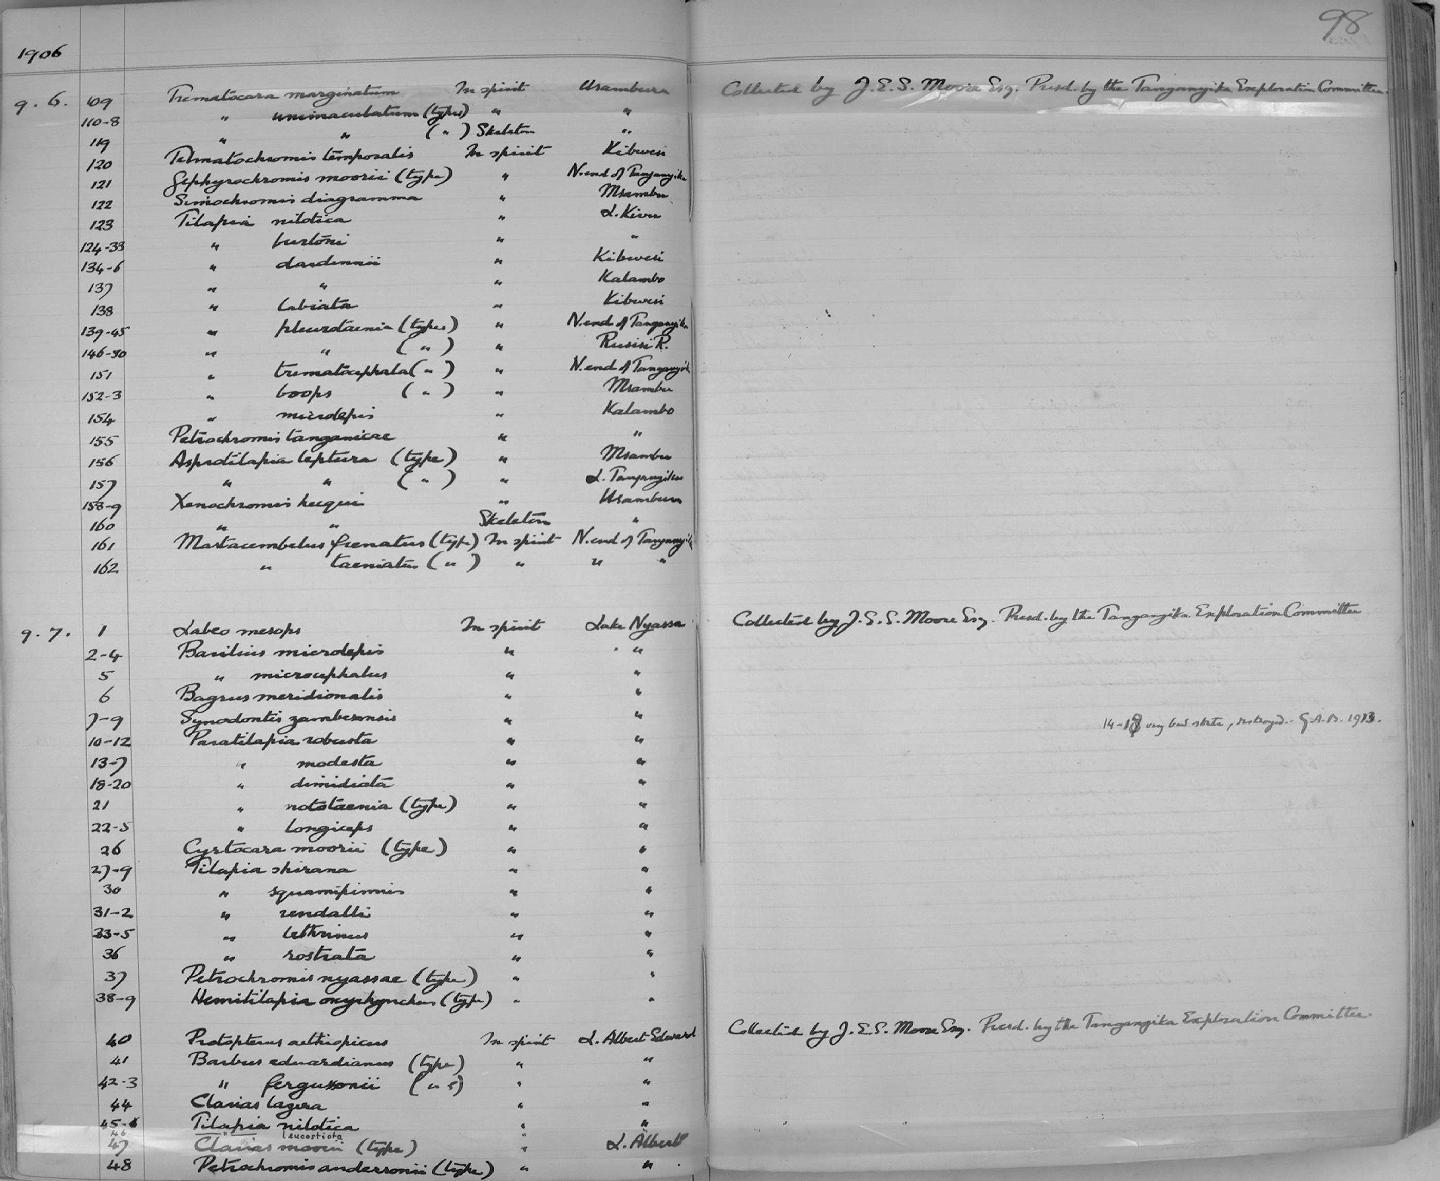 98
1906
9. 6. 109 Trematocara marginatum In spirit Usambura Collected by J.E.S. Moore Esq. Presd. by the Tanganyika Exploration Committee.
110-8 " unimaculatum (types) " "
119 " " ( " ) Skeleton "
120 Telmatochromis temporalis In spirit Kibwesi
121 Gephyrochromis moorii (type) " N. end of Tanganyika
122 Simochromis diagramma " Msambu
123 Tilapia nilotica " L. Kivu
124-33 " burtoni " "
134-6 " dardennii " Kibwesi
137 " " " Kalambo
138 " labiata " Kibwesi
139-45 " pleurotaenia (types) " N. end of Tanganyika
146-50 " " ( " ) " Rusisi R.
151 " trematocephala ( " ) " N. end of Tanganyik
152-3 " boops ( " ) " Msambu
154 " microlepis " Kalambo
155 Petrochromis tanganicae " "
156 Asprotilapia leptura (type) " Msambu
157 " " ( " ) " L. Tanganyika
158-9 Xenochromis hecqui " Usambura
160 " " Skeleton "
161 Mastacembelus frenatus (type) In spirit N. end of Tanganyik
162 " taeniatus ( " ) " " "
9. 7. 1 Labeo mesops In spirit Lake Nyassa Collected by J.E.S. Moore Esq. Presd. by the Tanganyika Exploration Committee
2-4 Barilius microlepis " " "
5 " microcephalus " "
6 Bagrus meridionalis " "
7-9 Synodontis zambesensis " " 14-18 very bad state, destroyed. G.A.B. 1913.
10-12 Paratilapia robusta " "
13-7 " modesta " "
18-20 " dimidiata " "
21 " notataenia (type) " "
22-5 " longiceps " "
26 Cyrtocara moorii (type) " "
27-9 Tilapia shirana " "
30 " squamipinnis " "
31-2 " rendalli " "
33-5 " lethrinus " "
36 " rostrata " "
37 Petrochromis nyassae (type) " "
38-9 Hemitilapia oxyrhynchus (type) " "
40 Protopterus aethiopicus In spirit L. Albert Edward Collected by J.E.S. Moore Esq. Presd. by the Tanganyika Exploration Committee.
41 Barbus eduardianus (type) " "
42-3 " fergussonii ( " s) " "
44 Clarias lazera " "
45-6 Tilapia nilotica " "
46 " leucosticta "
47 Clarias moorii (type) " L. Albert
48 Petrochromis andersonii (type) " "